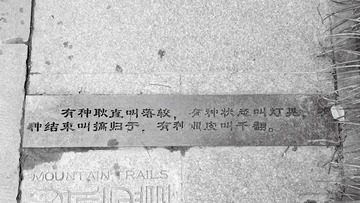 有种耿直叫落较，有种状态叫灯晃，有
种结束叫搞归于，有种 叫干翻。
MOUNTAIN TRAILS